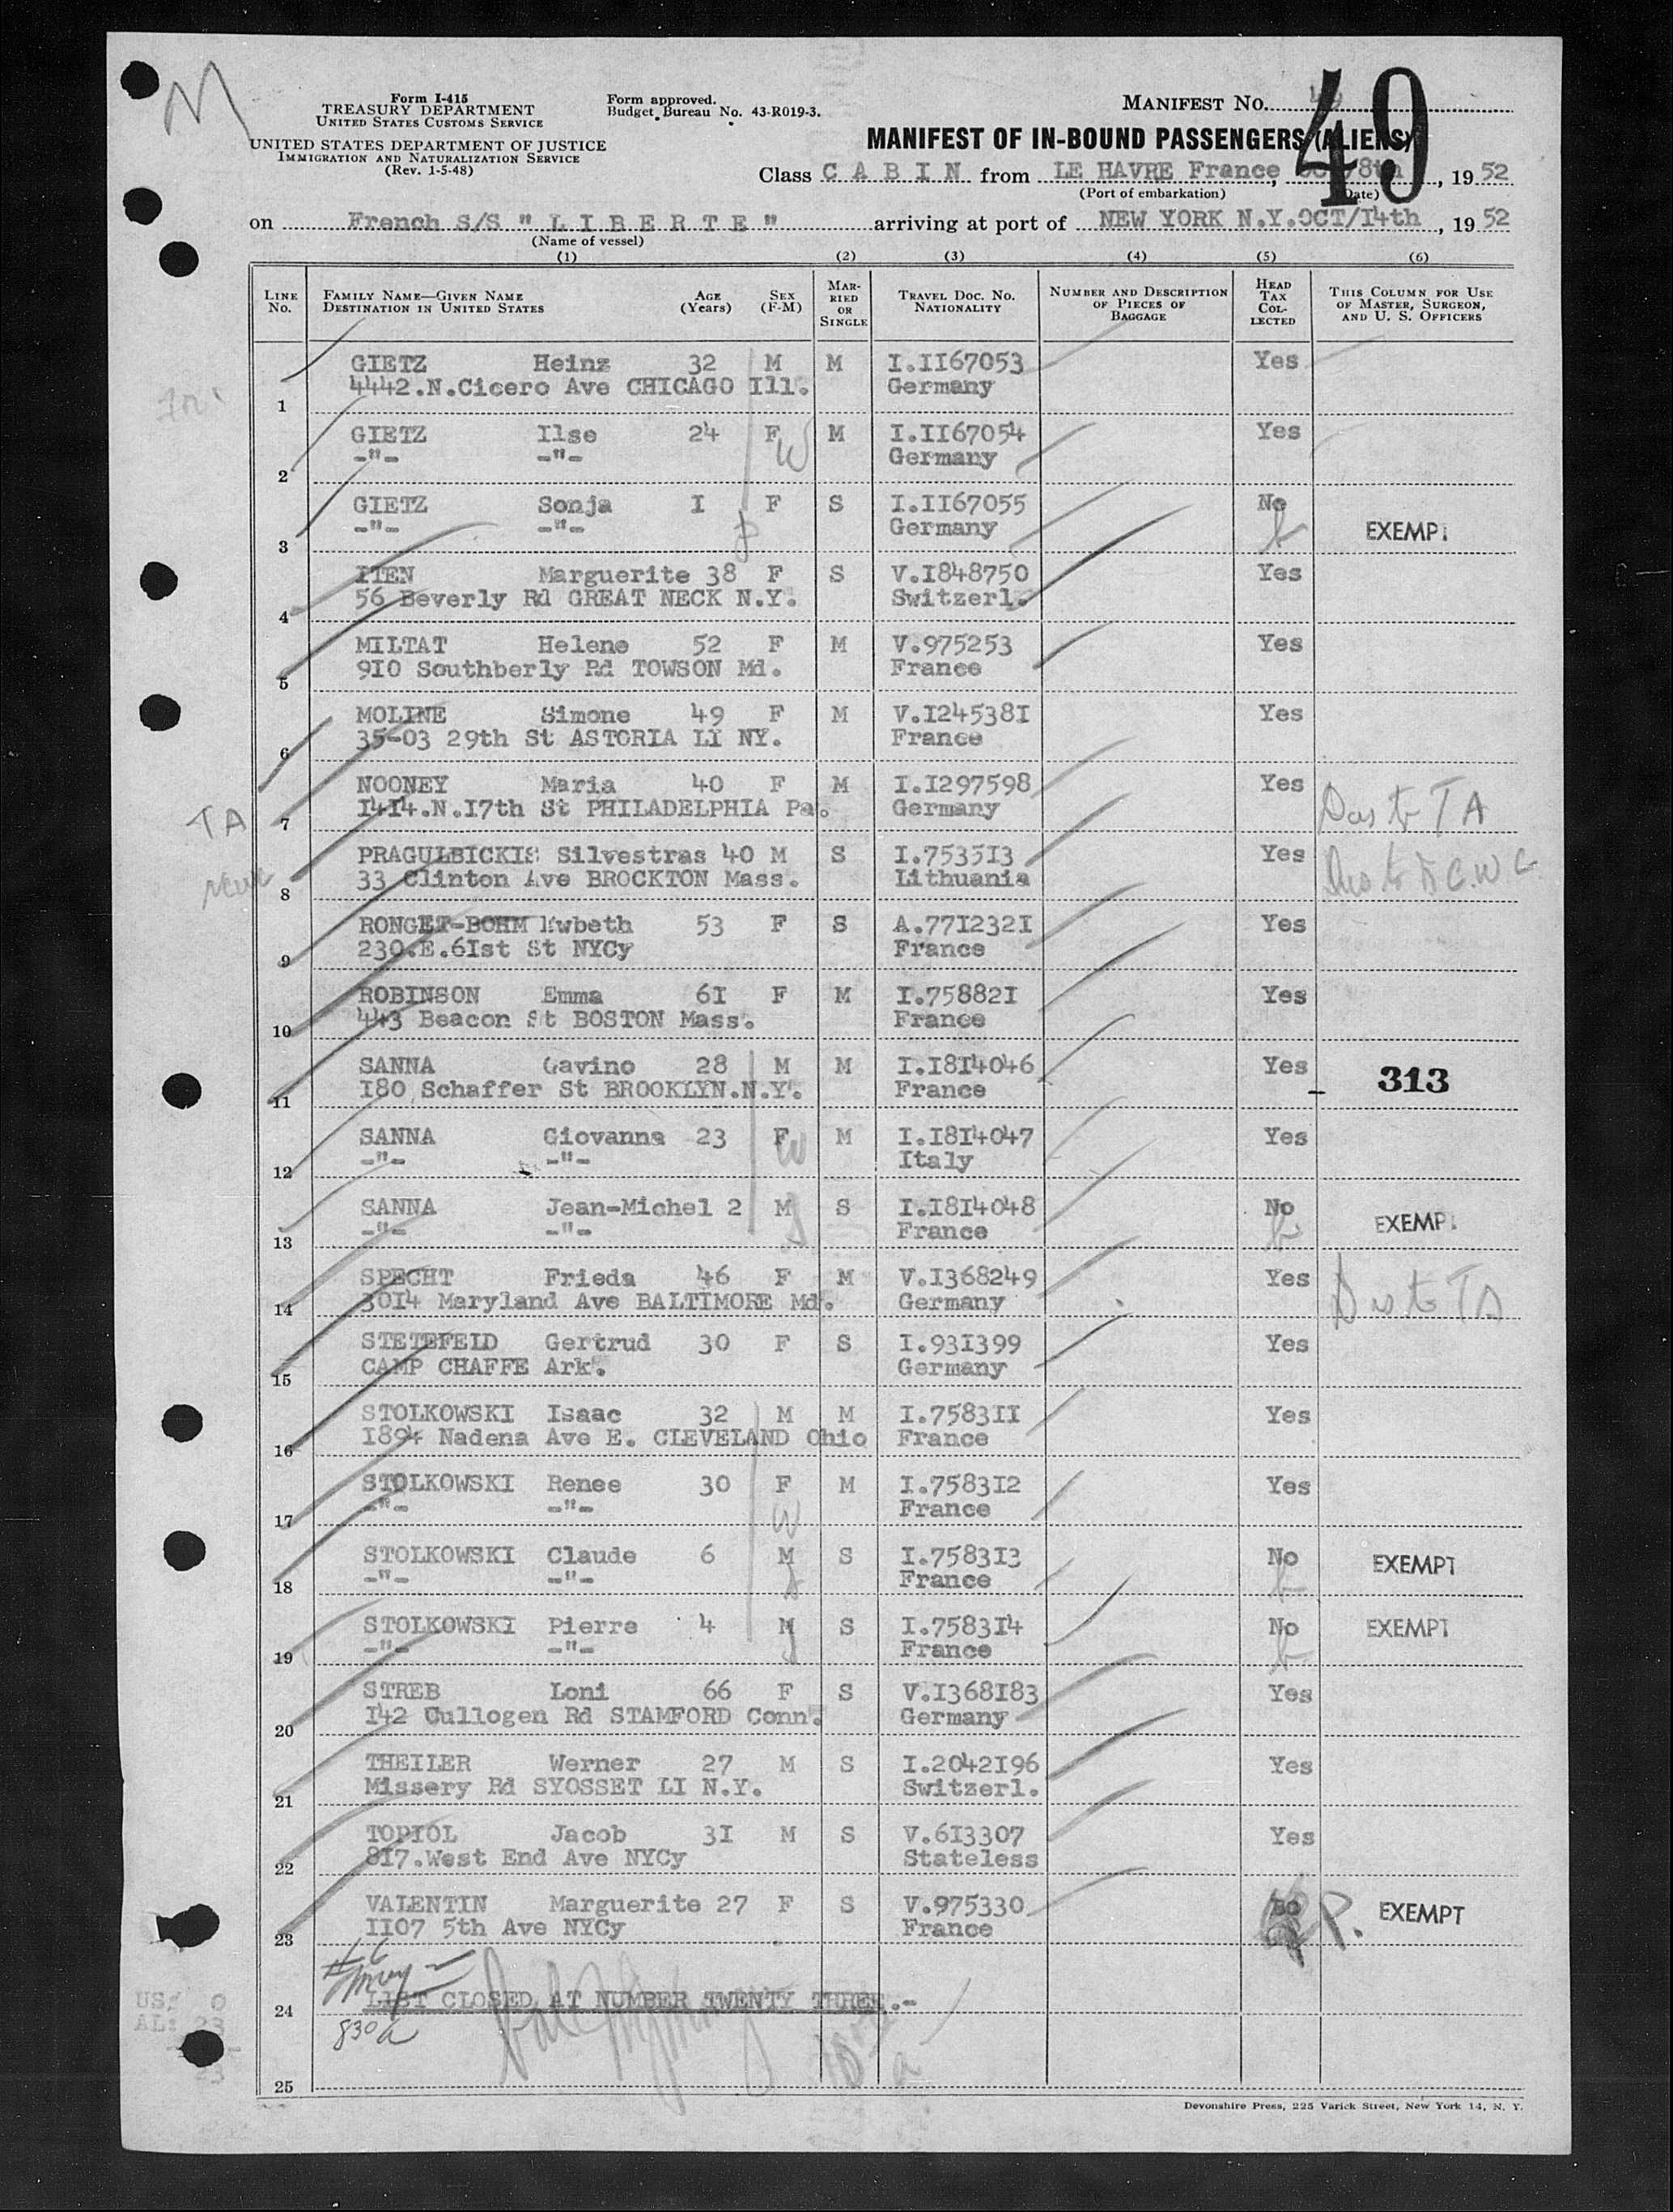 M
Form I-415
TREASURY DEPARTMENT
UNITED STATES CUSTOMS SERVICE
UNITED STATES DEPARTMENT OF JUSTICE
IMMIGRATION AND NATURALIZATION SERVICE
(Rev. 1-5-48)
Form approved.
Budget Bureau No. 43-R019-3.
MANIFEST NO. 49
MANIFEST OF IN-BOUND PASSENGERS (ALIENS)
Class C A B I N from LE HAVRE France, 8th, 1952
(Port of embarkation) (Date)
on French S/S " L I B E R T E " arriving at port of NEW YORK N.Y. OCT/I4th, 1952
(Name of vessel)
(1) (2) (3) (4) (5) (6)
LINE No. FAMILY NAME—GIVEN NAME DESTINATION IN UNITED STATES AGE (Years) SEX (F-M) MARRIED OR SINGLE TRAVEL DOC. NO. NATIONALITY NUMBER AND DESCRIPTION OF PIECES OF BAGGAGE HEAD TAX COLLECTED THIS COLUMN FOR USE OF MASTER, SURGEON, AND U. S. OFFICERS
GIETZ Heinz 32 M M I.II67053 Yes
1 4442.N.Cicero Ave CHICAGO Ill. Germany
GIETZ Ilse 24 F W M I.II67054 Yes
2 -"- -"- Germany
GIETZ Sonja I F S I.II67055 No
3 -"- -"- Germany EXEMPT
ITEN Marguerite 38 F S V.I848750 Yes
4 56 Beverly Rd GREAT NECK N.Y. Switzerl.
MILTAT Helene 52 F M V.975253 Yes
5 9I0 Southberly Rd TOWSON Md. France
MOLINE Simone 49 F M V.I24538I Yes
6 35-03 29th St ASTORIA LI NY. France
NOONEY Maria 40 F M I.I297598 Yes
TA 7 I4I4.N.I7th St PHILADELPHIA Pa. Germany Das to TA
PRAGULBICKIS Silvestras 40 M S I.7535I3 Yes
8 33 Clinton Ave BROCKTON Mass. Lithuania
RONGET-BOHM Ewbeth 53 F S A.77I232I Yes
9 230.E.6Ist St NYCy France
ROBINSON Emma 6I F M I.75882I Yes
10 443 Beacon St BOSTON Mass. France
SANNA Gavino 28 M M I.I8I4046 Yes 313
11 I80 Schaffer St BROOKLYN.N.Y. France
SANNA Giovanna 23 F W M I.I8I4047 Yes
12 -"- -"- Italy
SANNA Jean-Michel 2 M S I.I8I4048 No
13 -"- -"- France EXEMPT
SPECHT Frieda 46 F M V.I368249 Yes
14 30I4 Maryland Ave BALTIMORE Md. Germany Das to TA
STETEFELD Gertrud 30 F S I.93I399 Yes
15 CAMP CHAFFE Ark. Germany
STOLKOWSKI Isaac 32 M M I.7583II Yes
16 I894 Nadena Ave E. CLEVELAND Ohio France
STOLKOWSKI Renee 30 F W M I.7583I2 Yes
17 -"- -"- France
STOLKOWSKI Claude 6 M S I.7583I3 No EXEMPT
18 -"- -"- France
STOLKOWSKI Pierre 4 M S I.7583I4 No EXEMPT
19 -"- -"- France
STREB Loni 66 F S V.I368I83 Yes
20 I42 Cullogen Rd STAMFORD Conn. Germany
THEILER Werner 27 M S I.2042I96 Yes
21 Missery Rd SYOSSET LI N.Y. Switzerl.
TOPIOL Jacob 3I M S V.6I3307 Yes
22 8I7.West End Ave NYCy Stateless
VALENTIN Marguerite 27 F S V.975330 P. EXEMPT
23 II07 5th Ave NYCy France
US: 0
24 LIST CLOSED AT NUMBER TWENTY THREE.-
AL: 23
830a
23
25
Devonshire Press, 225 Varick Street, New York 14, N. Y.